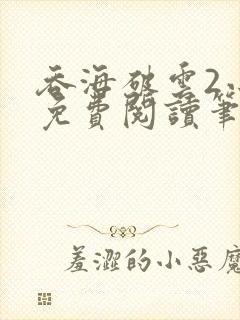 吞海破雲2
免費閱讀筆
羞澀的小惡魔